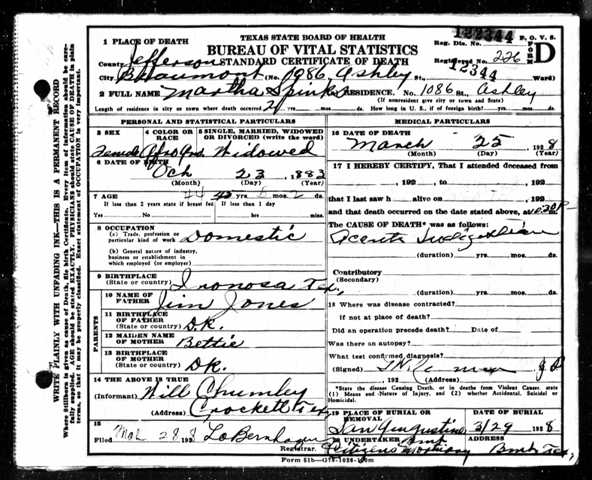 TEXAS STATE BOARD OF HEALTH
BUREAU OF VITAL STATISTICS
STANDARD CERTIFICATE OF DEATH
1 PLACE OF DEATH
County Jefferson
City Beaumont (No. 1086 Ashley St., Ward)
Reg. Dis. No. 122344
Registered No. 226
12344
D
2 FULL NAME Martha Spinks RESIDENCE. No. 1086 St. Ashley
(If nonresident give city or town and State)
Length of residence in city or town where death occurred 21 yrs. mos. ds. How long in U. S., if of foreign birth? yrs. mos. ds.
PERSONAL AND STATISTICAL PARTICULARS
3 SEX
4 COLOR OR RACE
5 SINGLE, MARRIED, WIDOWED OR DIVORCED (write the word)
Female Widowed
6 DATE OF BIRTH
Och 23 1883
(Month) (Day) (Year)
7 AGE yrs. mos. ds.
If less than 2 years state if breast fed If less than 1 day
Yes No hrs. min.
8 OCCUPATION
(a) Trade, profession or particular kind of work Domestic
(b) General nature of industry, business or establishment in which employed (or employer)
9 BIRTHPLACE
(State or country) Ironosa Tex.
PARENTS
10 NAME OF FATHER Jim Jones
11 BIRTHPLACE OF FATHER (State or country) DK.
12 MAIDEN NAME OF MOTHER Bettie
13 BIRTHPLACE OF MOTHER (State or country) DK.
14 THE ABOVE IS TRUE
(Informant) Will Chumley
(Address) Crockett Tex
15
Filed Mch 28 1928 Registrar.
MEDICAL PARTICULARS
16 DATE OF DEATH
March 25 1928
(Month) (Day) (Year)
17 I HEREBY CERTIFY, That I attended deceased from
, 192 , to , 192
that I last saw h alive on , 192
and that death occurred on the date stated above, at
The CAUSE OF DEATH* was as follows:
Acute Indigestion
(duration) yrs. mos. ds.
Contributory
(Secondary)
(duration) yrs. mos. ds.
18 Where was disease contracted?
if not at place of death?
Did an operation precede death? Date of
Was there an autopsy?
What test confirmed diagnosis?
(Signed)
, 192 (Address)
*State the disease Causing Death, or in deaths from Violent Causes, state (1) Means and Nature of Injury, and (2) whether Accidental, Suicidal or Homicidal.
19 PLACE OF BURIAL OR REMOVAL
San Augustine
DATE OF BURIAL
3/29 1928
20 UNDERTAKER
Citizens Mortuary
ADDRESS
Bmt Tex.
WRITE PLAINLY WITH UNFADING INK—THIS IS A PERMANENT RECORD